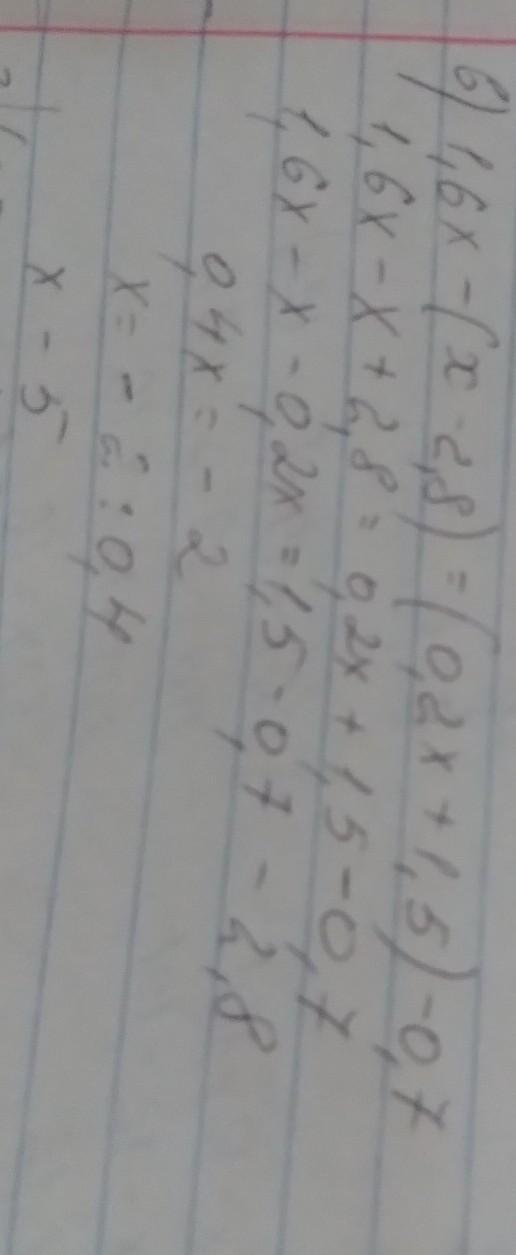 в) 1,6x - (x - 2,8) = (0,2x + 1,5) - 0,7
1,6x - x + 2,8 = 0,2x + 1,5 - 0,7
1,6x - x - 0,2x = 1,5 - 0,7 - 2,8
0,4x = - 2
x = - 2 : 0,4
x - 5